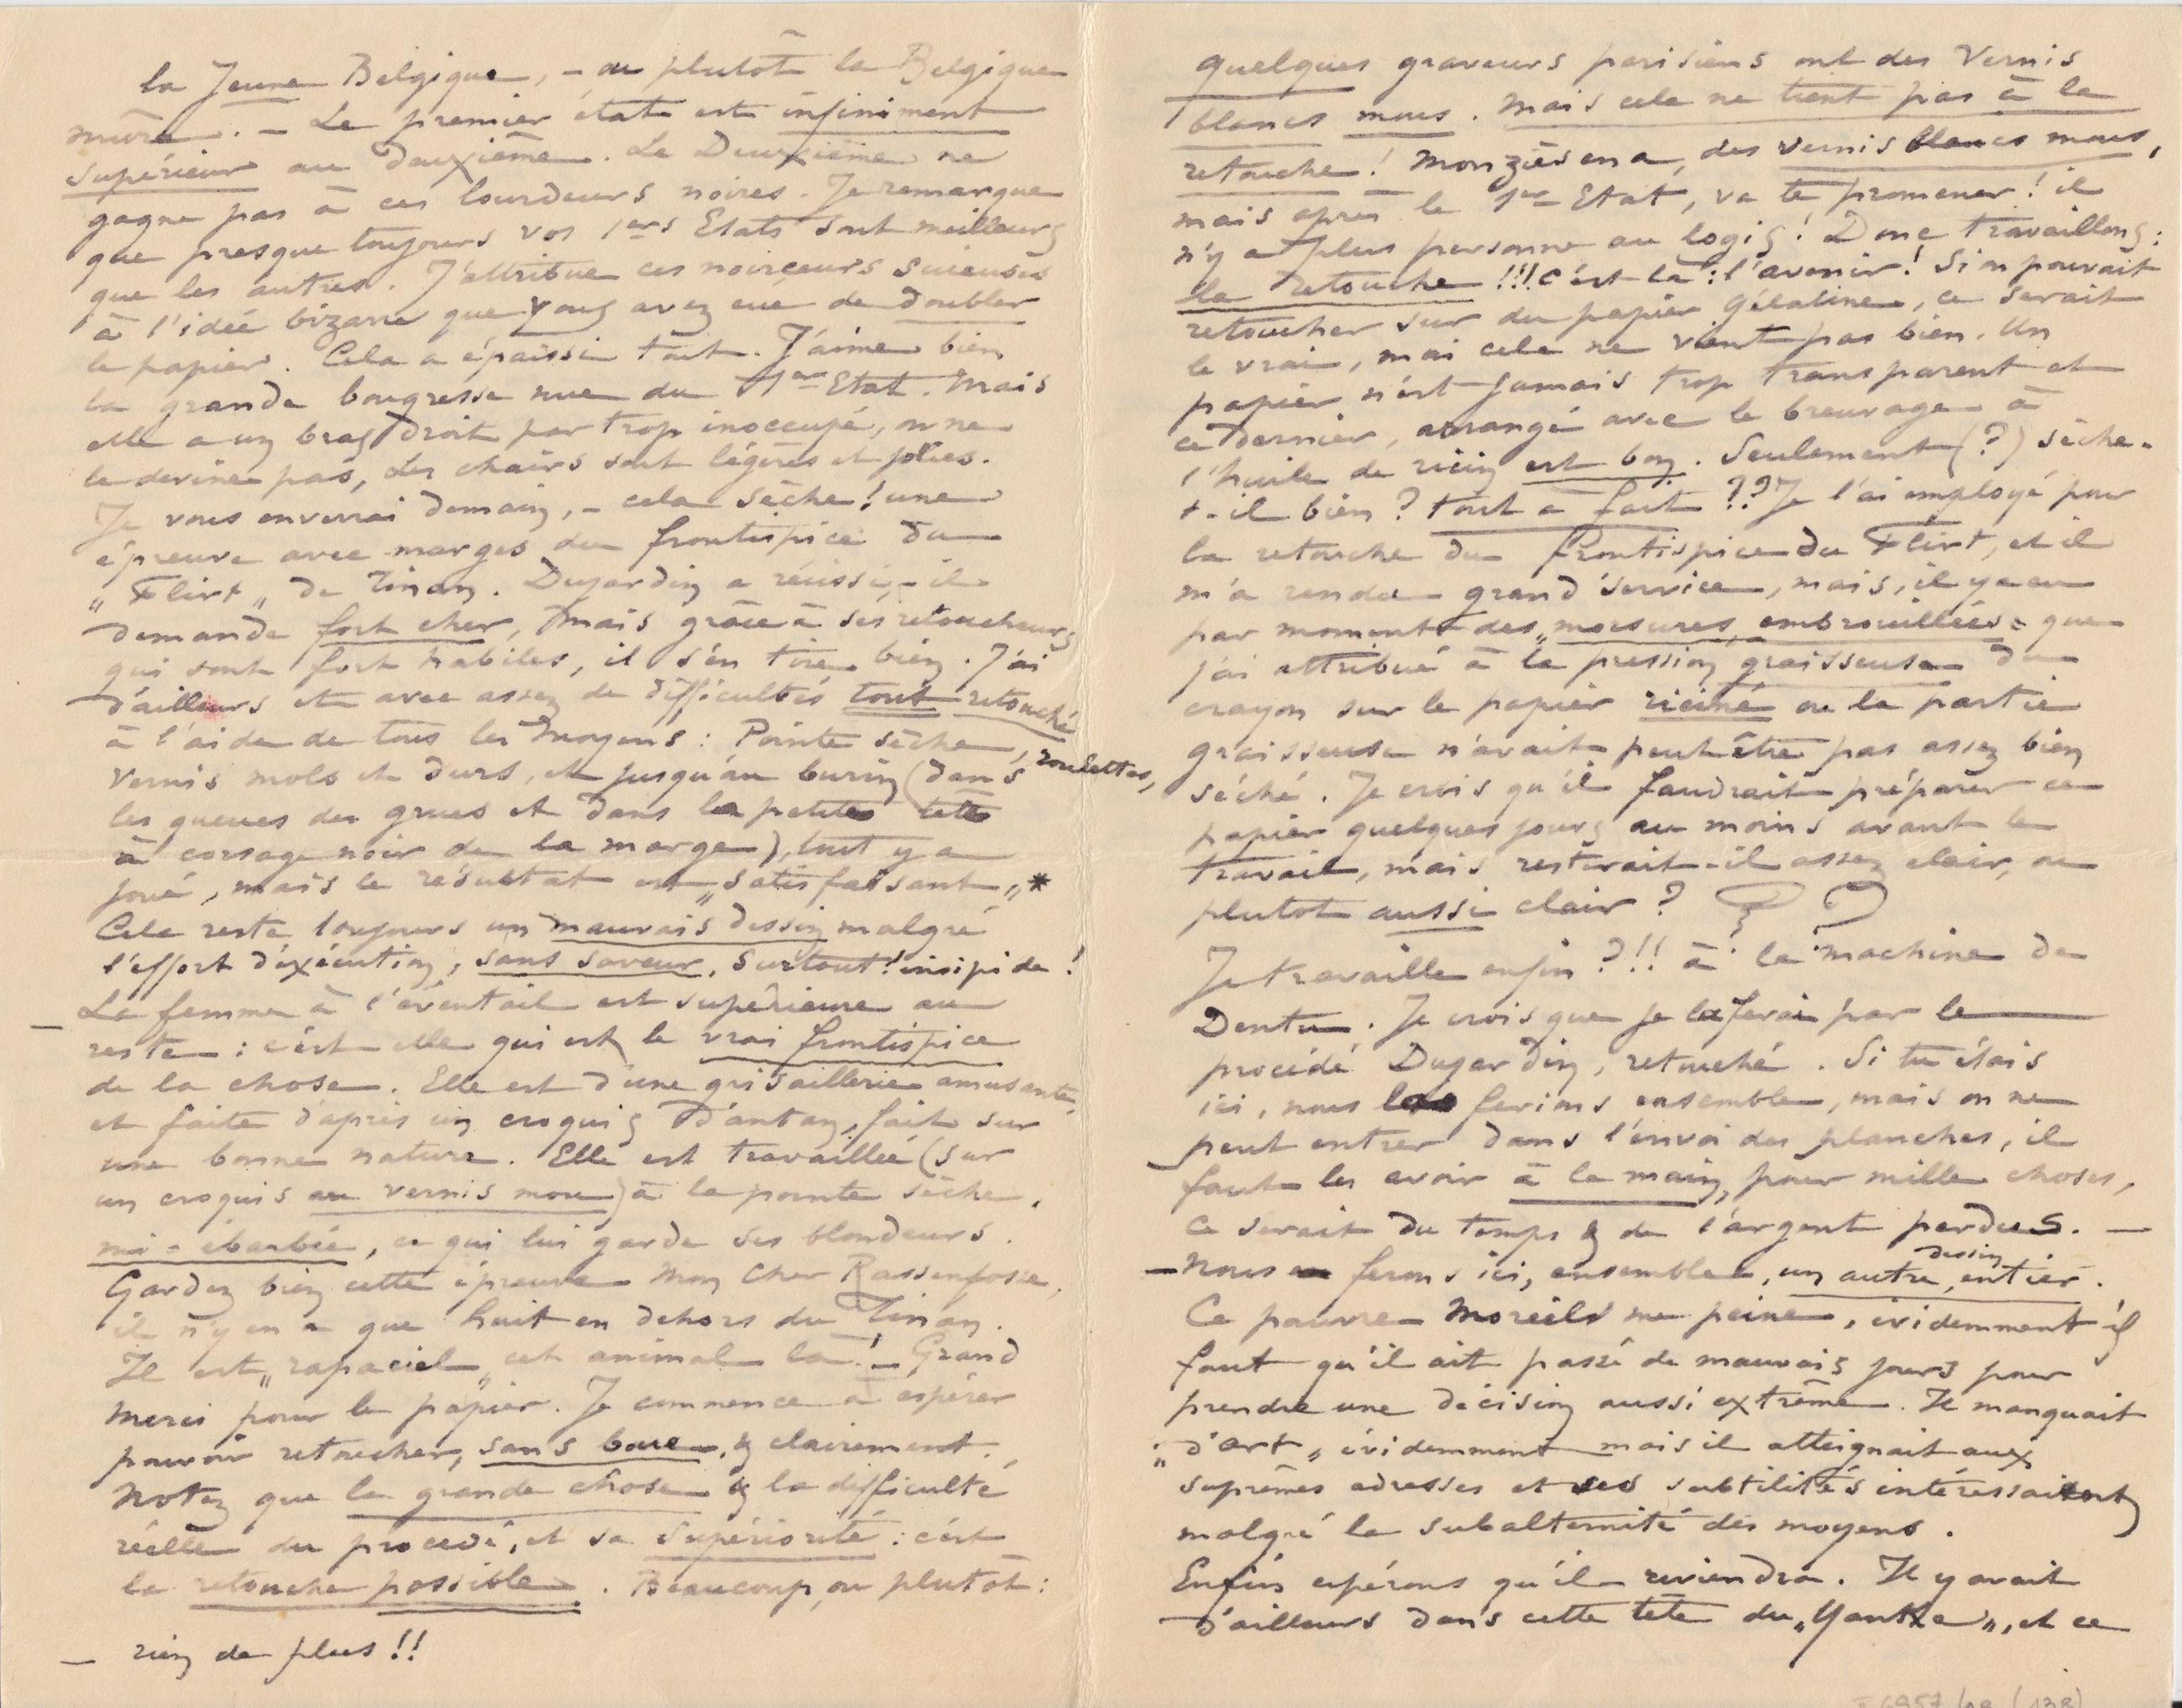 la Jeune Belgique, – ou plutôt la Belgique
mûre. – Le premier état est infiniment
supérieur au deuxième. Le Deuxième ne
gagne pas à ces lourdeurs noires. Je remarque
que presque toujours vos 1ers Etats sont meilleurs
que les autres. J'attribue ces noirceurs suieuses
à l'idée bizarre que vous avez eue de doubler
le papier. Cela a épaissi tout. J'aime bien
la grande bougresse nue du 1er Etat. Mais
elle a un bras droit par trop inoccupé, on ne
le devine pas, les chairs sont légères et jolies.
Je vous enverrai demain, – cela sèche! une
épreuve avec marges du frontispice du
„Flirt„ de Tinan. Dujardin a réussi, – il
demande fort cher, mais grâce à ses retoucheurs
qui sont fort habiles, il s'en tire bien. J'ai
d'ailleurs et avec assez de difficultés tout retouché
à l'aide de tous les moyens: Pointe sèche, roulettes,
vernis mols et durs, et jusqu'au burin (dans
les queues des grues et dans la petite tête
à corsage noir de la marge), tout y a
joué, mais le résultat est „satisfaisant„ *
Cela reste toujours un mauvais dessin malgré
l'effort d'éxécution, sans saveur, surtout! insipide!
– La femme à l'éventail est supérieure au
reste: c'est elle qui est le vrai frontispice
de la chose. Elle est d'une grisaillerie amusante,
et faite d'après un croquis d'antan, fait sur
une bonne nature. Elle est travaillée (sur
un croquis au vernis mou) à la pointe sèche,
mi-ébarbée, ce qui lui garde ses blondeurs.
Gardez bien cette épreuve mon cher Rassenfosse,
il n'y en a que huit en dehors du Tinan.
Il est „rapaciel„ cet animal là! – Grand
merci pour le papier. Je commence à éspérer
pouvoir retoucher, sans boue, & clairement.
Notez que la grande chose & la difficulté
réelle du procédé, et sa supériorité: c'est
la retouche possible. Beaucoup, ou plutôt:
– rien de plus!!
quelques graveurs parisiens ont des Vernis
blancs mous. Mais cela ne tient pas à la
retouche! Monziès en a, des vernis blancs mous,
mais après le 1er Etat, va te promener! il
n'y a plus personne au logis! Donc travaillons:
la retouche!!! c'est là: l'avenir! Si on pouvait
retoucher sur du papier gélatine, ce serait
le vrai, mai cela ne vient pas bien. Un
papier n'est jamais trop transparent et
ce dernier, arrangé avec le breuvage à
l'huile de ricin est bon. Seulement (?) sèche-
t-il bien? tout à fait?? Je l'ai employé pour
la retouche du frontispice du Flirt, et il
m'a rendu grand service, mais, il y a eu
par moments des „morsures embrouillées„ que
j'ai attribué à la pression graisseuse du
crayon sur le papier riciné ou la partie
graisseuse n'avait peut être pas assez bien
séché. Je crois qu'il faudrait préparer ce
papier quelques jours au moins avant le
travail, mais resterait-il assez clair, ou
plutot aussi clair?
Je travaille enfin?!! à la machine de
Dentu. Je crois que je la ferai par le
procédé Dujardin, retouché. Si tu étais
ici, nous les ferions ensemble, mais on ne
peut entrer dans l'envoi des planches, il
faut les avoir à la main, pour mille choses,
ce serait du temps & de l'argent perdus. –
– Nous ferons ici, ensemble, un autre dessin entier.
Ce pauvre Moreels me peine, évidemment il
faut qu'il ait passé de mauvais jours pour
prendre une décision aussi extrême. Il manquait
„d'art„ évidemment mais il atteignait aux
suprêmes adresses et ses subtilités intéressaient
malgré la subalternité des moyens.
Enfin espérons qu'il reviendra. Il y avait
d'ailleurs dans cette tête du „Yankee„, et ce